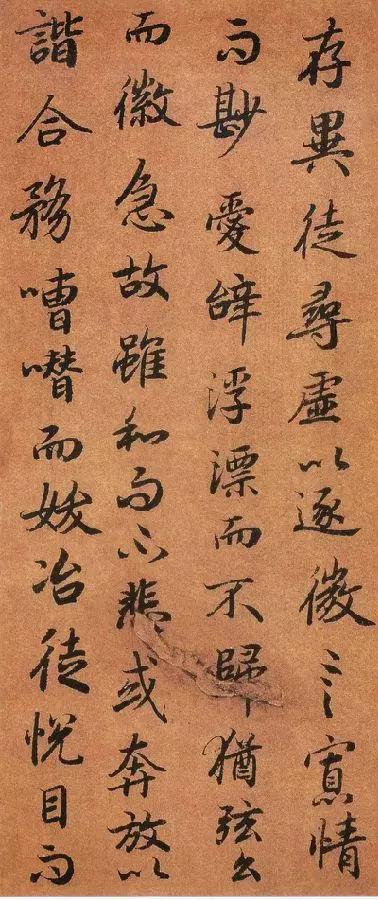 存異徒尋虛以逐微言寡情
而尠愛辭浮漂而不歸猶弦么
而徽急故雖和而不悲或奔放以
諧合務嘈囋而妖冶徒悅目而